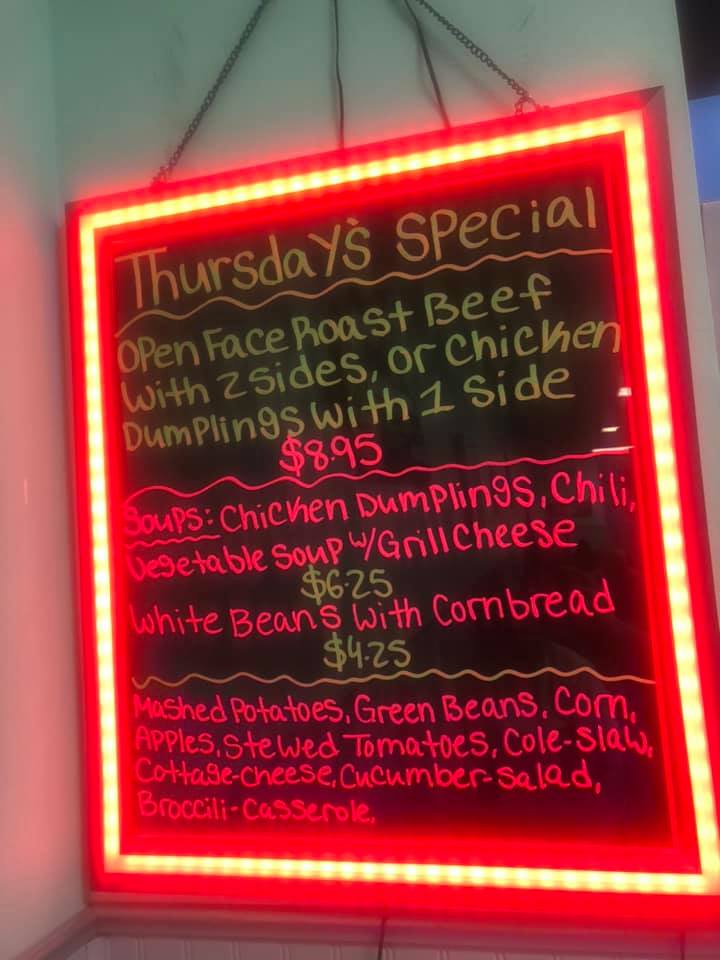 Thursday's Special
Open Face Roast Beef
With 2 Sides, or Chicken
Dumplings With 1 Side
$8.95
Soups: Chicken Dumplings, Chili,
Vegetable Soup W/Grill Cheese
$6.25
White Beans With Cornbread
$4.25
Mashed Potatoes, Green Beans, Corn,
Apples, Stewed Tomatoes, Cole-Slaw,
Cottage-Cheese, Cucumber-Salad,
Broccili-Casserole,